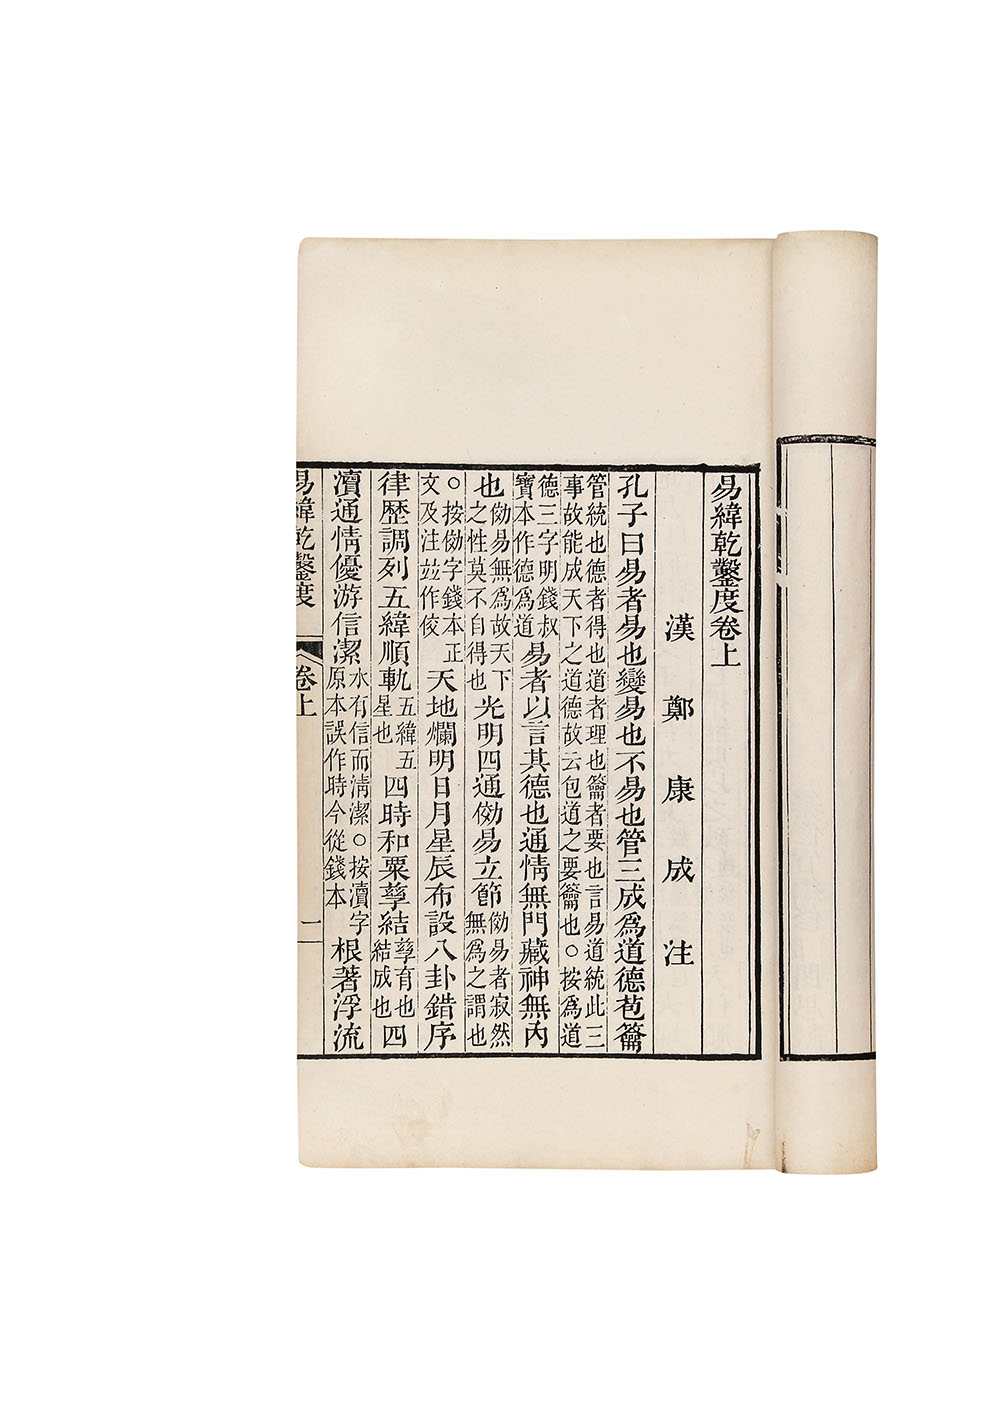 易緯乾鑿度卷上
漢鄭康成注
孔子曰易者易也變易也不易也管三成爲道德苞籥
管統也德者得也道者理也籥者要也言易道統此三
事故能成天下之道德故云包道之要籥也○按爲道
德三字明錢叔寶本作德爲道易者以言其德也通情無門藏神無內
也俲易無爲故天下之性莫不自得也光明四通俲易立節俲易者寂然無爲之謂也
○按俲字錢本正文及注竝作俊天地爛明日月星辰布設八卦錯序
律歷調列五緯順軌五緯五星也四時和粟孳結孳育也結成也四
瀆通情優游信潔水有信而清潔○按瀆字原本誤作時今從錢本根著浮流
易緯乾鑿度 卷上 二